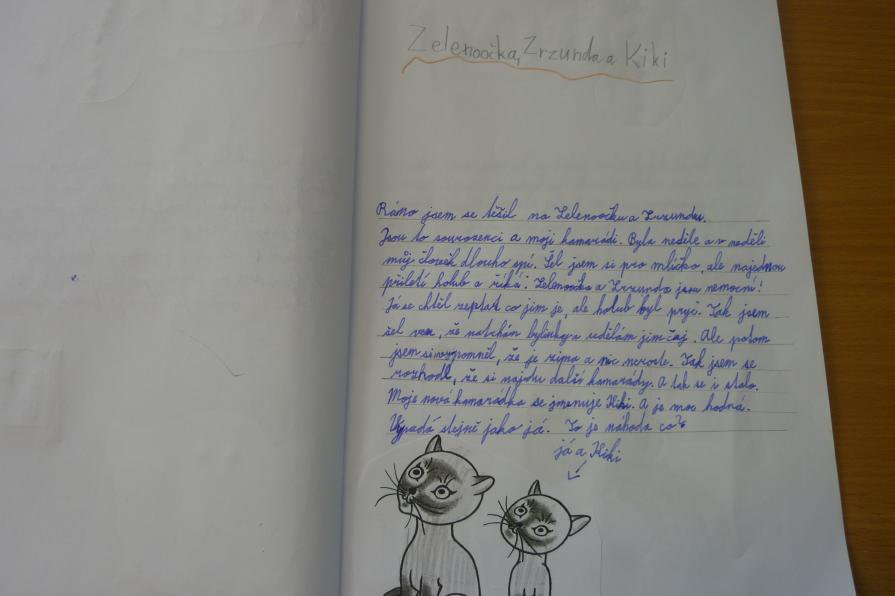 Zelenoočka, Zrzunda a Kiki
Ráno jsem se těšil na Zelenoočku a Zrzundu.
Jsou to sourozenci a moji kamarádi. Byla neděle a v neděli
můj člověk dlouho spí. Šel jsem si pro mlíčko, ale najednou
přiletí holub a říká: Zelenoočka a Zrzunda jsou nemocní!
Já se chtěl zeptat co jim je, ale holub byl pryč. Tak jsem
šel ven, že natrhám bylinky a udělám jim čaj. Ale potom
jsem si vzpomněl, že je zima a nic neroste. Tak jsem se
rozhodl, že si najdu další kamarády. A tak se i stalo.
Moje nová kamarádka se jmenuje Kiki. A je moc hodná.
Vypadá stejně jako já. To je náhoda co?
já a Kiki